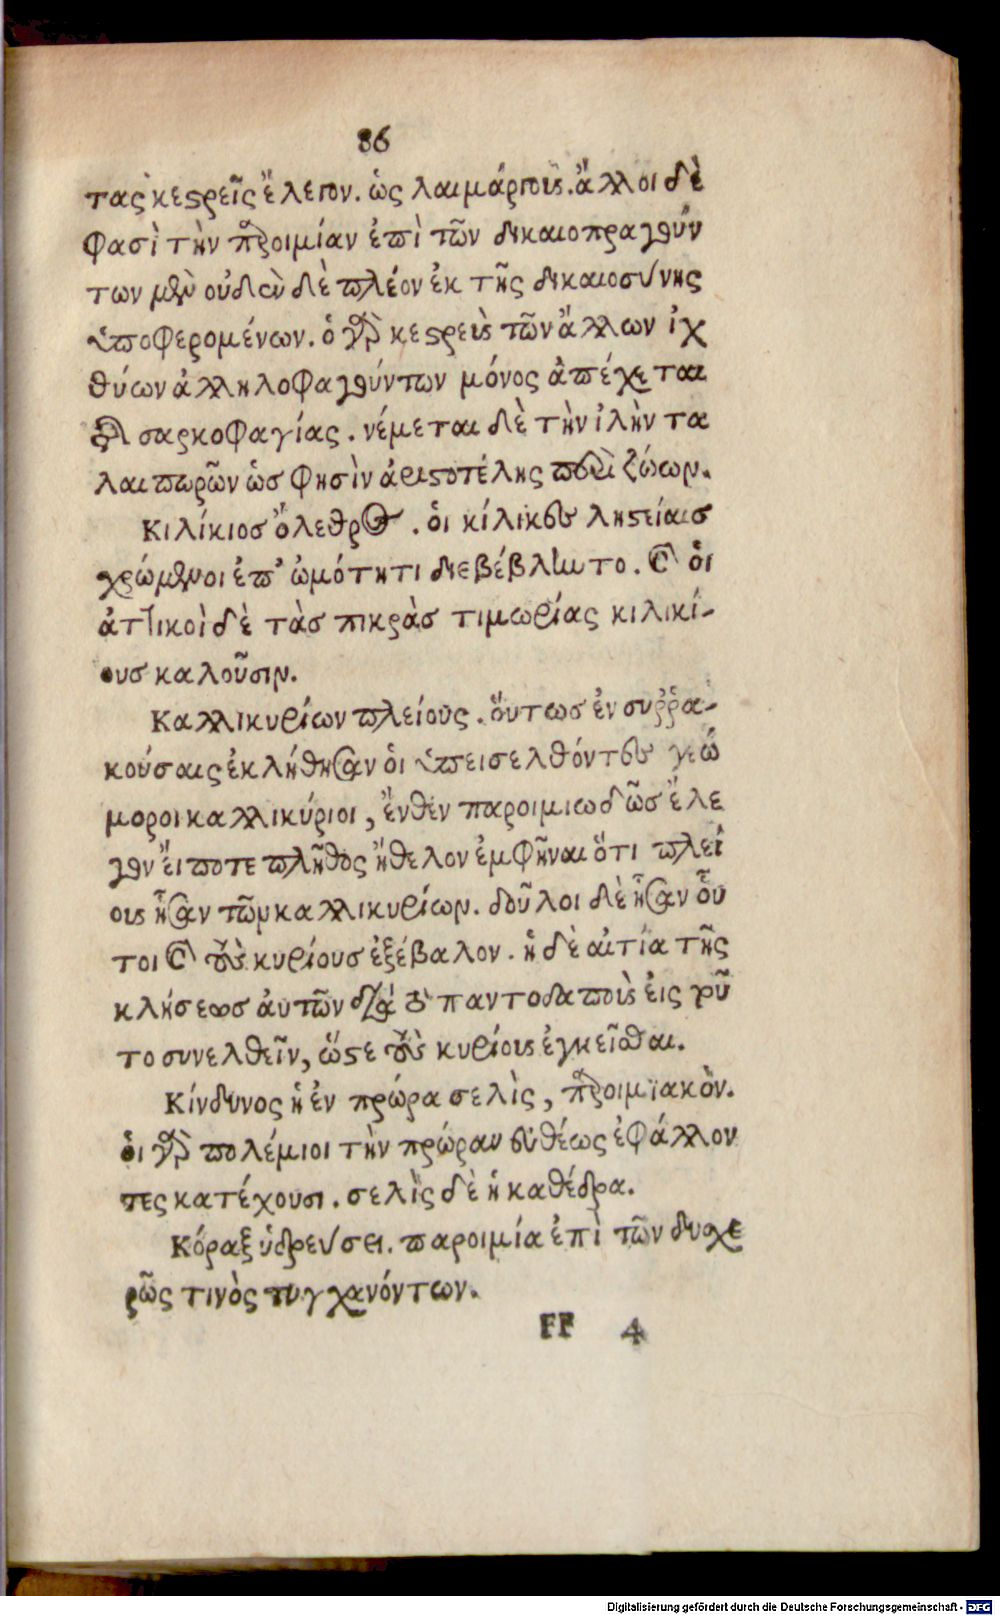 86
τας κεστρεῖς ἔλεγον. ὡς λαιμάργους. ἄλλοι δὲ
φασὶ τὴν παροιμίαν ἐπὶ τῶν δικαιοπραγούν
των μὲν οὐδὲν δὲ πλέον ἐκ τῆς δικαιοσύνης
ὑποφερομένων. ὁ γὰρ κεστρεὺς τῶν ἄλλων ἰχ
θύων ἀλληλοφαγούντων μόνος ἀπέχεται
τῆς σαρκοφαγίας. νέμεται δὲ τὴν ἰλὴν τα
λαιπωρῶν ὡσ φησὶν ἀριστοτέλης περὶ ζώων.
Κιλίκιοσ ὄλεθρος. ὁι κίλικες ληστείαισ
χρώμενοι ἐπ' ὠμότητι διεβέβληντο. καὶ ὁι
ἀττικοὶ δὲ τὰσ πικρὰσ τιμωρίας κιλικί-
ουσ καλοῦσιν.
Καλλικυρίων πλείους. ὅυτωσ ἐν συῤῥα-
κούσαις ἐκλήθησαν ὁι ὑπεισελθόντες γεώ
μοροι καλλικύριοι, ἔνθεν παροιμιωδῶσ ἔλε
γον ἔι ποτε πλῆθος ἤθελον ἐμφῆναι ὅτι πλεί
ους ἦσαν τῶν καλλικυρίων. δοῦλοι δὲ ἦσαν οὗ
τοι καὶ τοὺς κυρίουσ ἐξέβαλον. ἡ δὲ αἰτία τῆς
κλήσεως ἀυτῶν διὰ τὸ παντοδαποὺς ἐις ταῦ
το συνελθεῖν, ὥστε τοὺς κυρίους ἐγκεῖσθαι.
Κίνδυνος ἡ ἐν πρώρα σελὶς, παροιμϊακὸν.
ὁι γὰρ πολέμιοι τὴν πρώραν εὐθέως ἐφάλλον
τες κατέχουσι. σελὶς δὲ ἡ καθέδρα.
Κόραξ ὑδρεύσει. παροιμία ἐπὶ τῶν δυσχε
ρῶς τινὸς τυγχανόντων.
FF 4
Digitalisierung gefördert durch die Deutsche Forschungsgemeinschaft - DFG